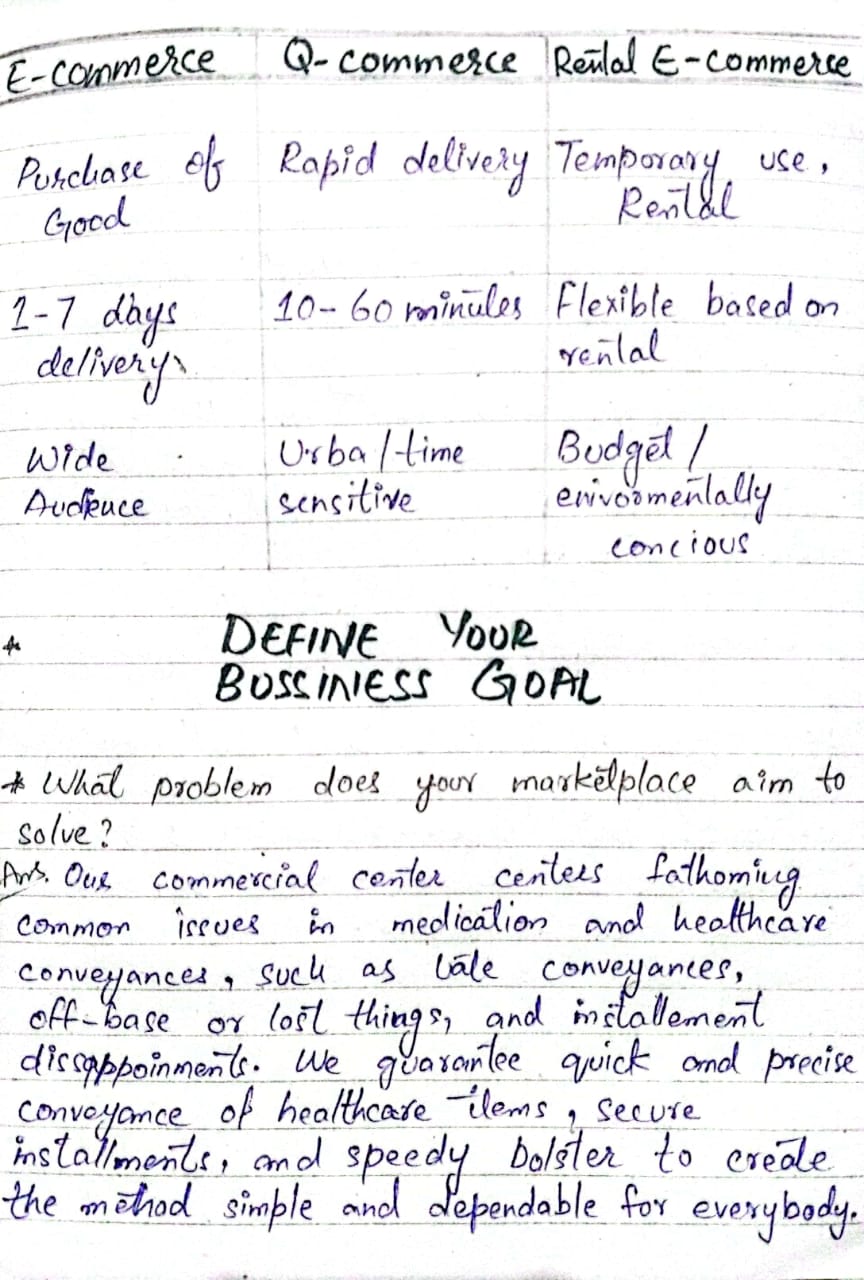 E-commerce Q-commerce Rental E-commerce
Purchase of Rapid delivery Temporary use,
Good Rental
1-7 days 10-60 minutes Flexible based on
delivery rental
Wide Urba/time Budget/
Audience sensitive enivoormentally
concious
* DEFINE YOUR
BUSSINIESS GOAL
* What problem does your marketplace aim to
solve?
Ans. Our commercial center centers fathoming
common issues in medication and healthcare
conveyances, such as late conveyances,
off-base or lost things, and installement
dissappoinments. We guarantee quick and precise
conveyance of healthcare items, secure
installments, and speedy bolster to create
the method simple and dependable for everybody.